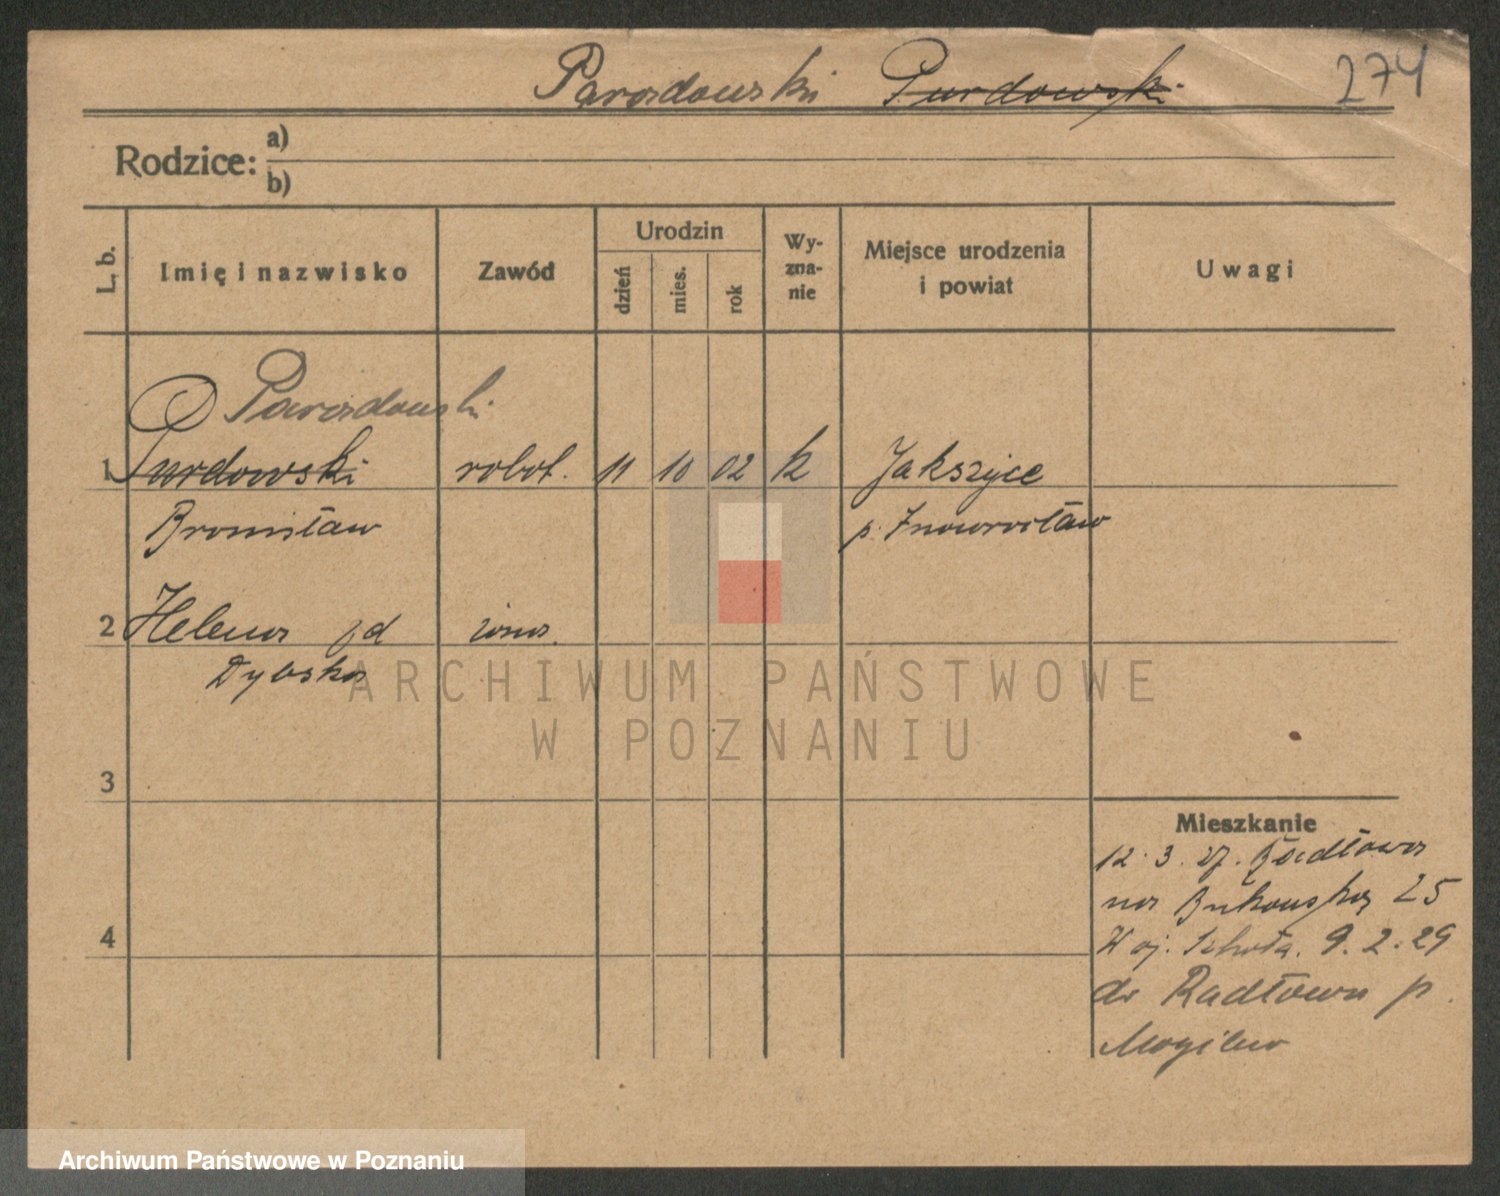 Parosdowski Purdowski 274
Rodzice: a)
b)
L. b. Imię i nazwisko Zawód Urodzin dzień mies. rok Wy-zna-nie Miejsce urodzenia i powiat Uwagi
Parosdowski
1 Purdowski robot. 11 10 02 k Jakszyce
Bronisław p. Inowrocław
2 Helena żona.
Dybska
ARCHIWUM PAŃSTWOWE
W POZNANIU
3
Mieszkanie
12.3.27. Radłowa
na Bukowską 25
4
Woj. Szkoła. 9.2.29
do Radłowa p.
Mogilno
Archiwum Państwowe w Poznaniu